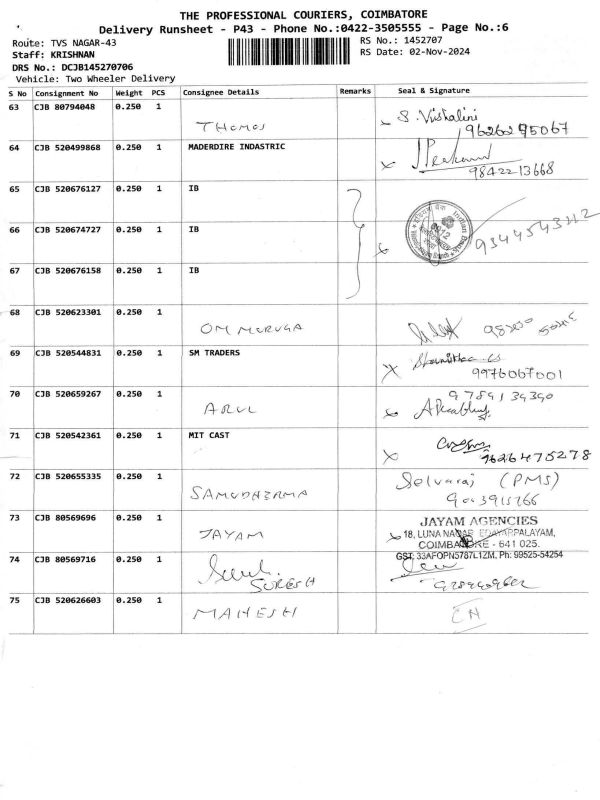 THE PROFESSIONAL COURIERS, COIMBATORE
Delivery Runsheet - P43 - Phone No.:0422-3505555 - Page No.:6
Route: TVS NAGAR-43 RS No.: 1452707
Staff: KRISHNAN RS Date: 02-Nov-2024
DRS No.: DCJB145270706
Vehicle: Two Wheeler Delivery
S No Consignment No Weight PCS Consignee Details Remarks Seal & Signature
63 CJB 80794048 0.250 1 S. Vishalini
THOMAS 9626295067
64 CJB 520499868 0.250 1 MADERDIRE INDASTRIC
9842213668
65 CJB 520676127 0.250 1 IB
66 CJB 520674727 0.250 1 IB
9344543212
67 CJB 520676158 0.250 1 IB
68 CJB 520623301 0.250 1
OM MURUGA
69 CJB 520544831 0.250 1 SM TRADERS
9976067001
70 CJB 520659267 0.250 1 9789134390
ARUL
71 CJB 520542361 0.250 1 MIT CAST
9626475278
72 CJB 520655335 0.250 1 Selvaraj (PMS)
SAMUDHRAMA
73 CJB 80569696 0.250 1 JAYAM AGENCIES
JAYAM 18, LUNA NAGAR EDAYARPALAYAM,
COIMBATORE - 641 025.
74 CJB 80569716 0.250 1 GST: 33AFOPN5767L1ZM. Ph: 99525-54254
SURESH
75 CJB 520626603 0.250 1
MAHESH